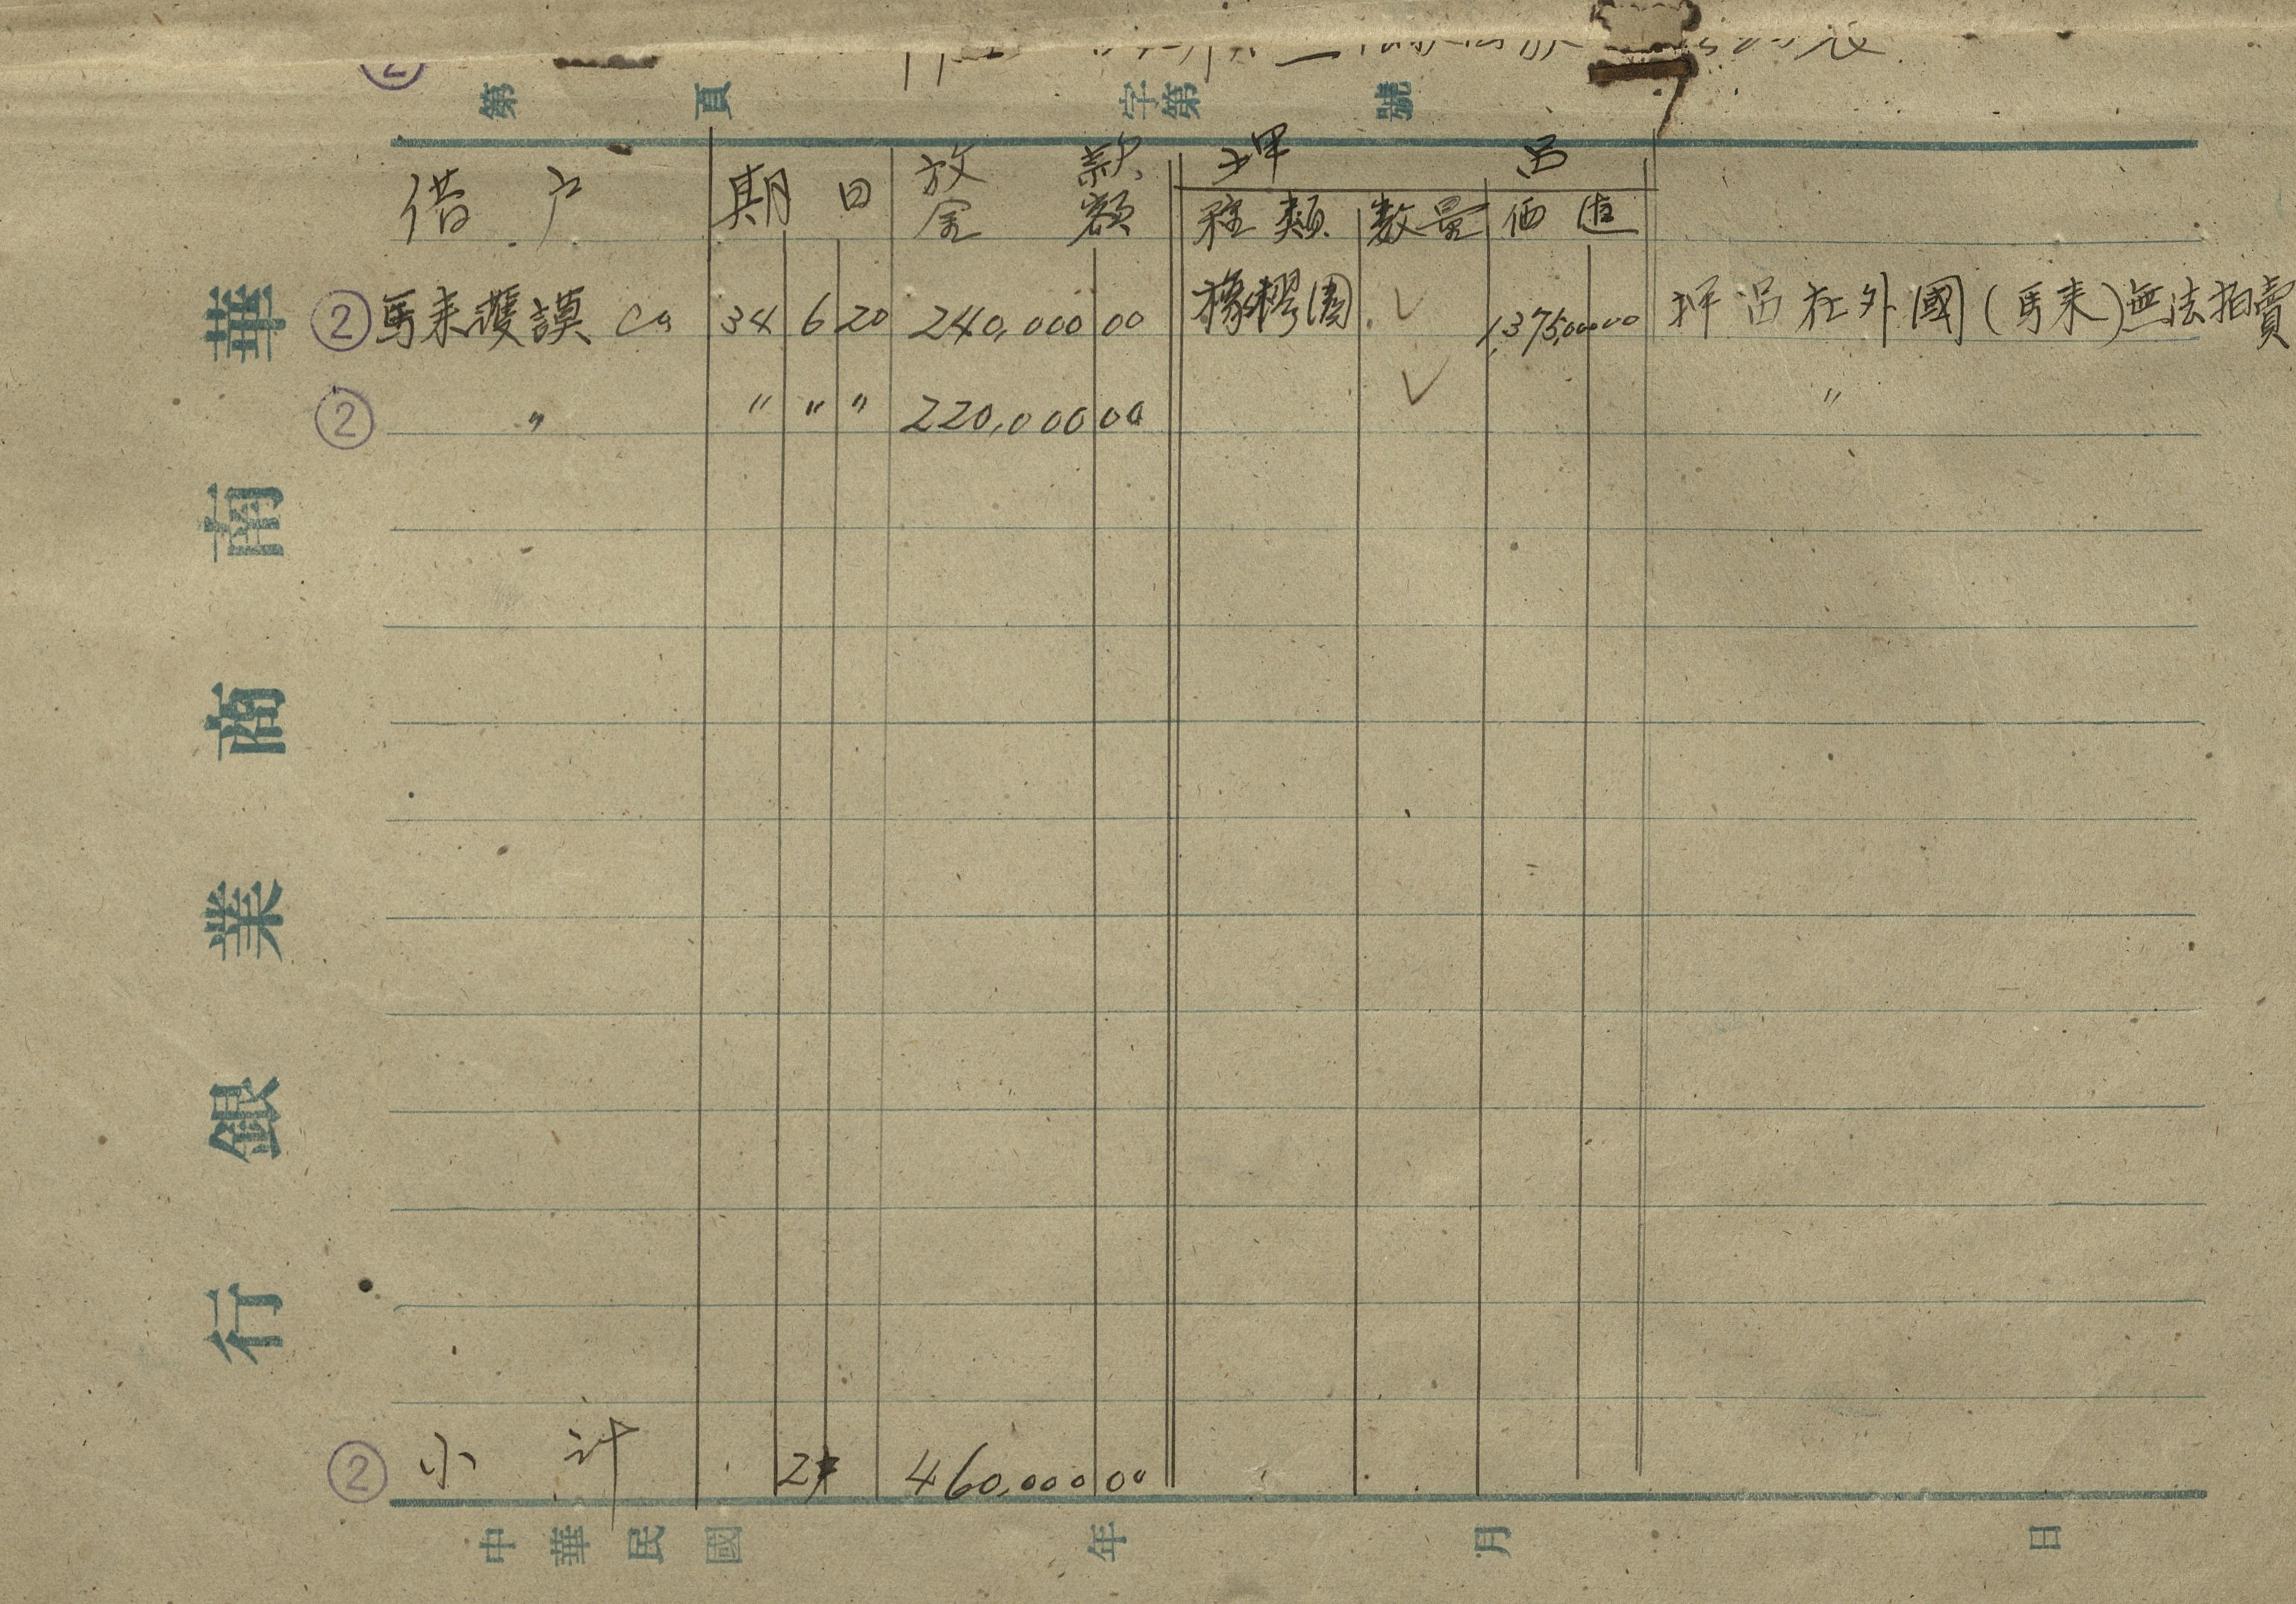 ②
第 頁 字第 號
華南商業銀行
借户 期日 放款金額 押品
種類 数量 価值
② 馬来護謨 Ca 34 6 20 240,000 00 橡樛園 ✓ 1,375,000 00 押品在外國(馬来)無法拍賣
② 〃 〃 〃 〃 220,000 00 ✓ 〃
② 小計 2 460,000 00
中華民國 年 月 日